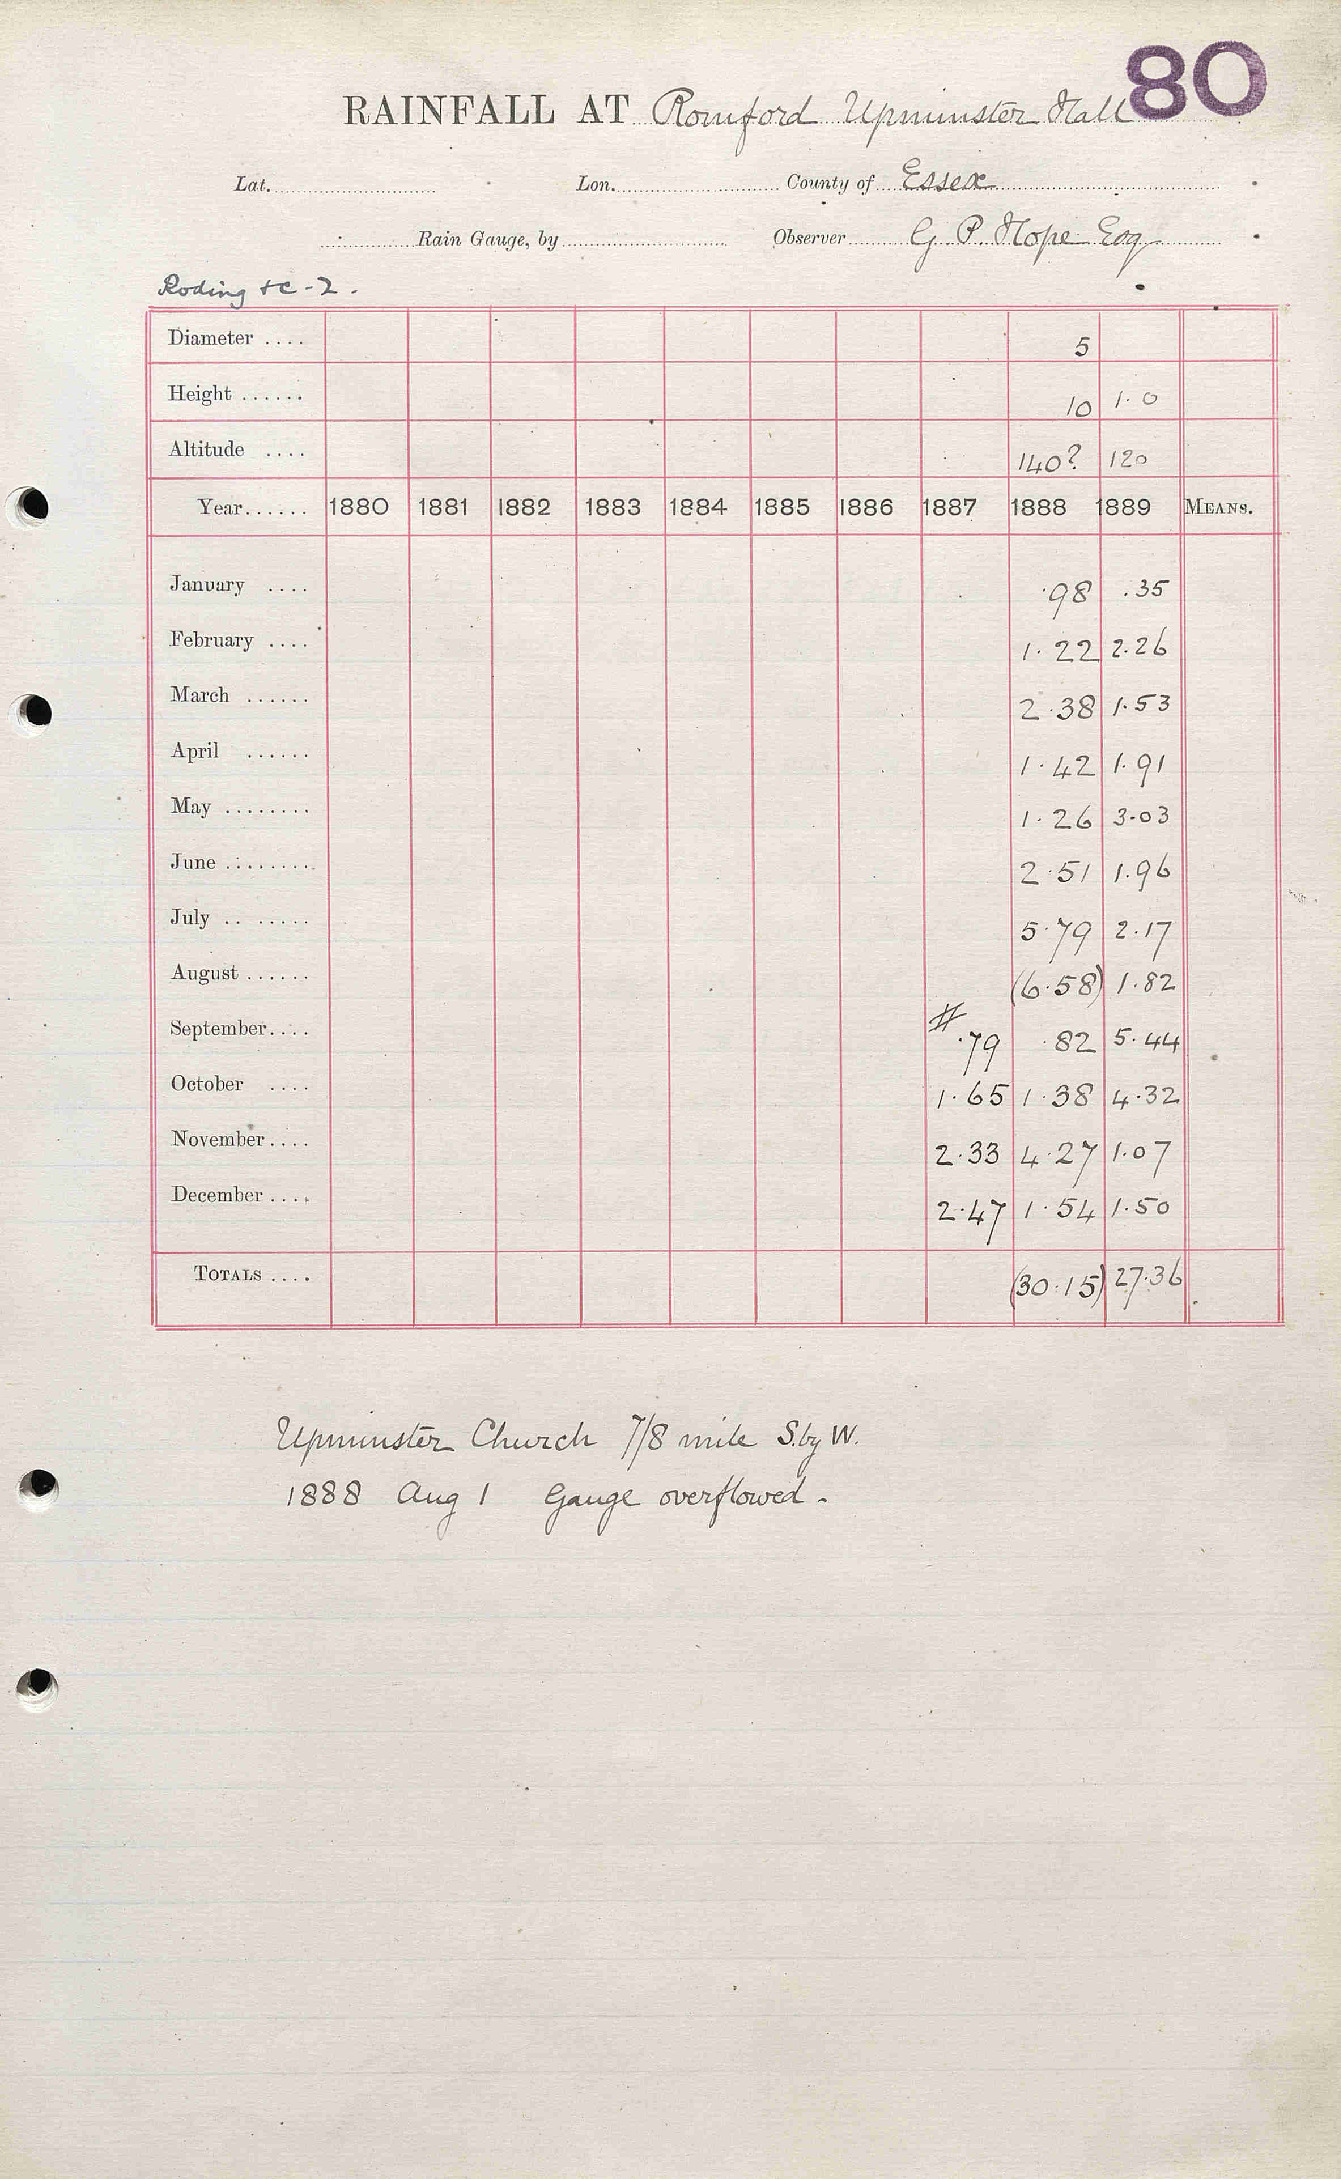 80
RAINFALL AT Romford Upminster Hall
Lat. Lon. County of Essex
Rain Gauge, by Observer G. P. Hope Esq
Roding &c - 2.
Diameter .... 5
Height ...... 10 1.0
Altitude .... 140? 120
Year...... 1880 1881 1882 1883 1884 1885 1886 1887 1888 1889 MEANS.
January .... .98 .35
February .... 1.22 2.26
March ...... 2.38 1.53
April ...... 1.42 1.91
May ........ 1.26 3.03
June ........ 2.51 1.96
July .. ...... 5.79 2.17
August ...... (6.58) 1.82
September.... # .79 .82 5.44
October .... 1.65 1.38 4.32
November .... 2.33 4.27 1.07
December .... 2.47 1.54 1.50
TOTALS .... (30.15) 27.36
Upminster Church 7/8 mile S. by W.
1888 Aug 1 Gauge overflowed.